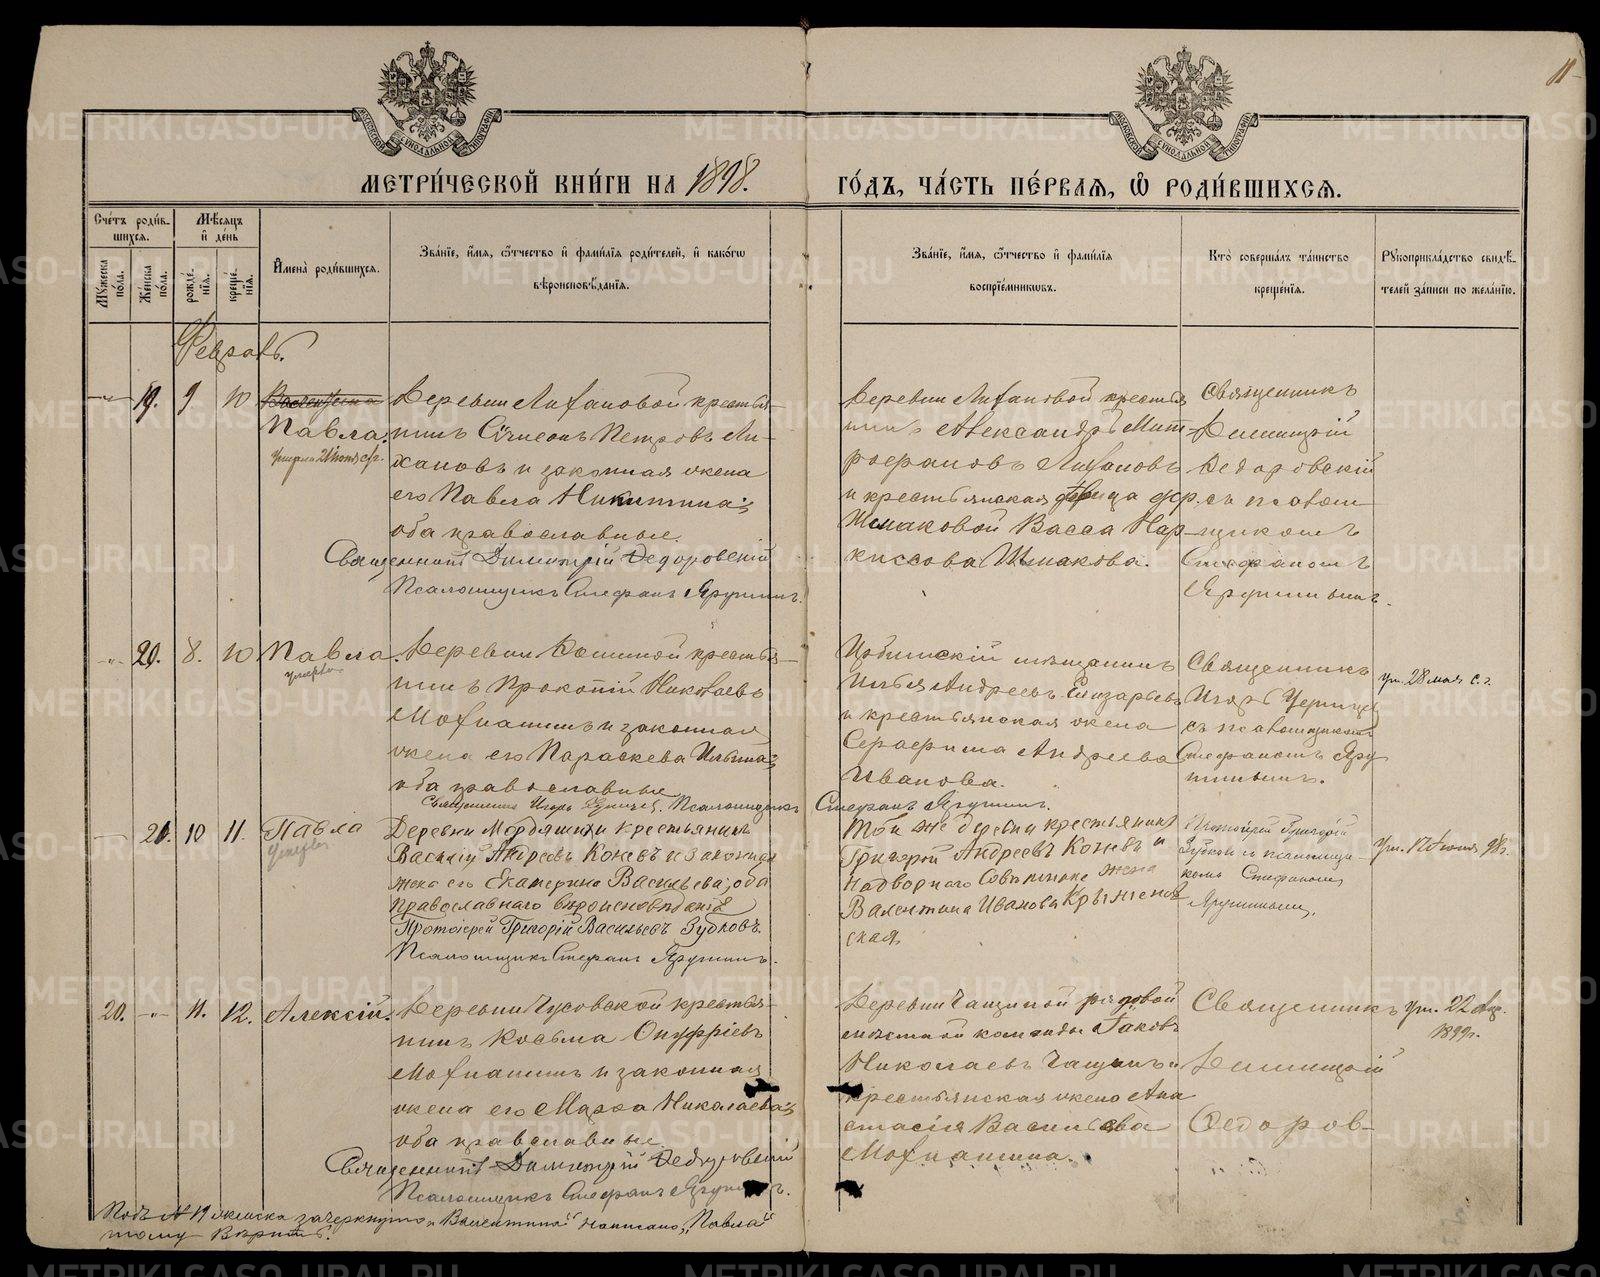 11
МЕТРИ́ЧЕСКОЙ КНИ́ГИ НА 1898. ГО́ДЪ, ЧА́СТЬ ПЕ́РВАѦ, Ѿ РОДИ́ВШИХСѦ.
Сче́тъ роди́в-
шихся.
Мѣ́сяцъ
и҆ де́нь
Му́жеска по́ла.
Же́нска по́ла.
рожде́-
нїя.
креще́-
нїя.
И҆мена̀ роди́вшихся.
Зва́нїе, и҆́мя, ѻ҆́тчество и҆ фами́лїя роди́телей, и҆ како́гѡ
вѣроисповѣ́данїя.
Зва́нїе, и҆́мя, ѻ҆́тчество и҆ фами́лїя
воспрїе́мникѡвъ.
Кто̀ соверша́лъ та́инство
креще́нїя.
Рꙋкоприкла́дство свидѣ́-
телей за́писи по жела́нїю.
Февраль.
19. 9 10
Валентина
Павла.
Умерла 21 июня с/г.
Деревни Лихановой крестья-
нинъ Сѵмеонъ Петровъ Ли-
хановъ и законная жена
его Павла Никитина;
оба православные.
Священникъ Димитрій Федоровскій
Псаломщикъ Стефанъ Ярушинъ.
Деревни Лихановой крестья
нинъ Александръ Мит-
рофановъ Лихановъ
и крестьянская девица дер.
Шмаковой Васса Нар-
киссова Шмакова.
Священникъ
Димитрій
Федоровскій
съ псалом-
щикомъ
Стефаномъ
Ярушинымъ.
20. 8. 10 Павла.
умерла
Деревни крестья-
нинъ Прокопій Николаевъ
Мохнашинъ и законная
жена его Параскева Ильина;
оба православные
Священникъ Игорь Псаломщикъ Стефанъ Ярушинъ.
мѣщанинъ
Илья Андреевъ Елизарьевъ
и крестьянская жена
Серафима Андреева
Иванова.
Священникъ
Игорь
съ псаломщикомъ
Стефаномъ Яру
шинымъ.
ум. 28 мая с. г.
21. 10 11. Павла
Умерла
Деревни крестьянинъ
Василій Андреевъ Коневъ и законная
жена его Екатерина Васильева; оба
православнаго вероисповѣданія
Протоіерей Григорій Васильевъ Зубковъ.
Псаломщикъ Стефанъ Ярушинъ.
Той же деревни крестьянинъ
Григорій Андреевъ Коневъ и
Надворнаго Совѣтника жена
Валентина Иванова
ская.
Протоіерей Григорій
Зубковъ съ псаломщи-
комъ Стефаномъ
Ярушинымъ.
Ум. 98 г.
20. 11. 12. Алексій.
Деревни Чусовской крестья-
нинъ Косьма Онуфріевъ
Мохнашинъ и законная
жена его Марѳа Николаева;
оба православные.
Священникъ Димитрій Федоровскій
Псаломщикъ Стефанъ Ярушинъ.
Деревни Чащиной рядовой
мѣстной команды Іаковъ
Николаевъ Чащинъ и
крестьянская жена Ана
стасія Васильева
Мохнашина.
Священникъ
Димитрій
Федоров-
ум. 22 Апр.
1899 г.
Подъ № 19 женска зачеркнуто „Валентина“ написано „Павла“
тому вѣрить.
METRIKI.GASO-URAL.RU